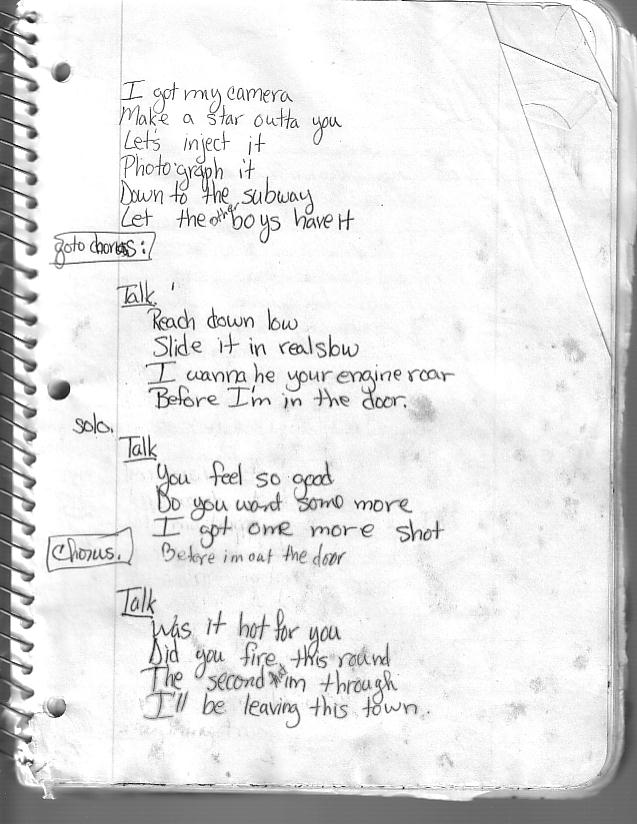 I got my camera
Make a star outta you
Let's inject it
Photograph it
Down to the subway
Let the other boys have it
goto chorus:
Talk
Reach down low
Slide it in real slow
I wanna he your engine roar
Before I'm in the door.
solo.
Talk
You feel so good
Do you want some more
I got one more shot
Chorus.
Before im out the door
Talk
Was it hot for you
Did you fire this round
The second im through
I'll be leaving this town.